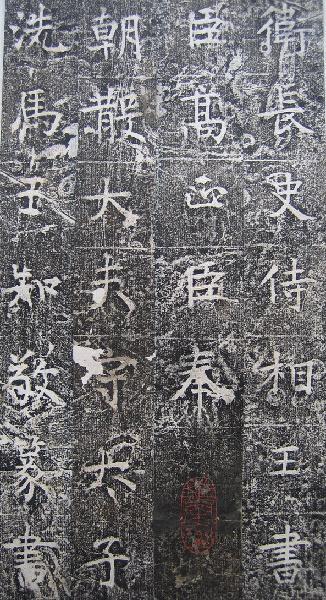 衛長史侍相王書
臣高正臣奉
朝散大夫守太子
洗馬王知敬篆書